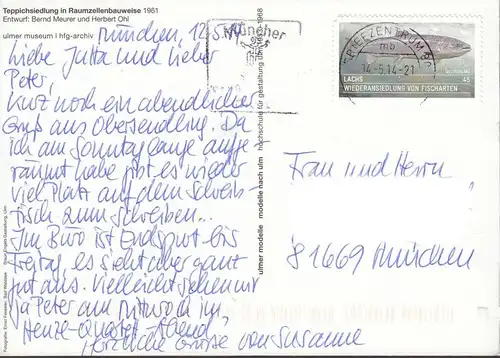 Teppichsiedlung in Raumzellenbauweise 1961
Entwurf: Bernd Meurer und Herbert Ohl
ulmer museum I hfg-archiv
München, 12.5.
Liebe Jutta und lieber
Peter,
kurz noch ein abendlicher
Gruß aus Obersendling. Da
ich am Sonntag ganze aufge-
räumt habe gibt es wieder
viel Platz auf dem Schreib-
tisch zum Schreiben...
Im Büro ist Endspurt bis
Freitag, es sieht aber ganz
gut aus. Vielleicht sehen wir
ja Peter am Mittwoch im
Henze-Quartett-Abend,
herzliche Grüße von Susanne
ulmer modelle modelle nach ulm hochschule für gestaltung ulm 1953-1968
Münchner
BRIEFZENTRUM 80
mb
14.5.14-21
DEUTSCHLAND
LACHS 45
WIEDERANSIEDLUNG VON FISCHARTEN
Frau und Herrn
81669 München